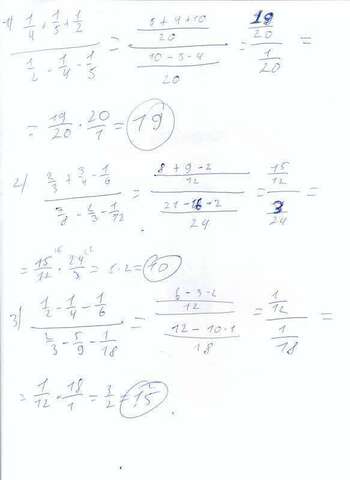 1) (1/4 + 1/5 + 1/2) / (1/2 - 1/4 - 1/5) = ((5 + 4 + 10)/20) / ((10 - 5 - 4)/20) = (19/20) / (1/20) =
= 19/20 · 20/1 = 19
2) (2/3 + 3/4 - 1/6) / (7/8 - 2/3 - 1/12) = ((8 + 9 - 2)/12) / ((21 - 16 - 2)/24) = (15/12) / (3/24) =
= 15/12 · 24/3 = 10
3) (1/2 - 1/4 - 1/6) / (2/3 - 5/9 - 1/18) = ((6 - 3 - 2)/12) / ((12 - 10 - 1)/18) = (1/12) / (1/18) =
= 1/12 · 18/1 = 3/2 = 15